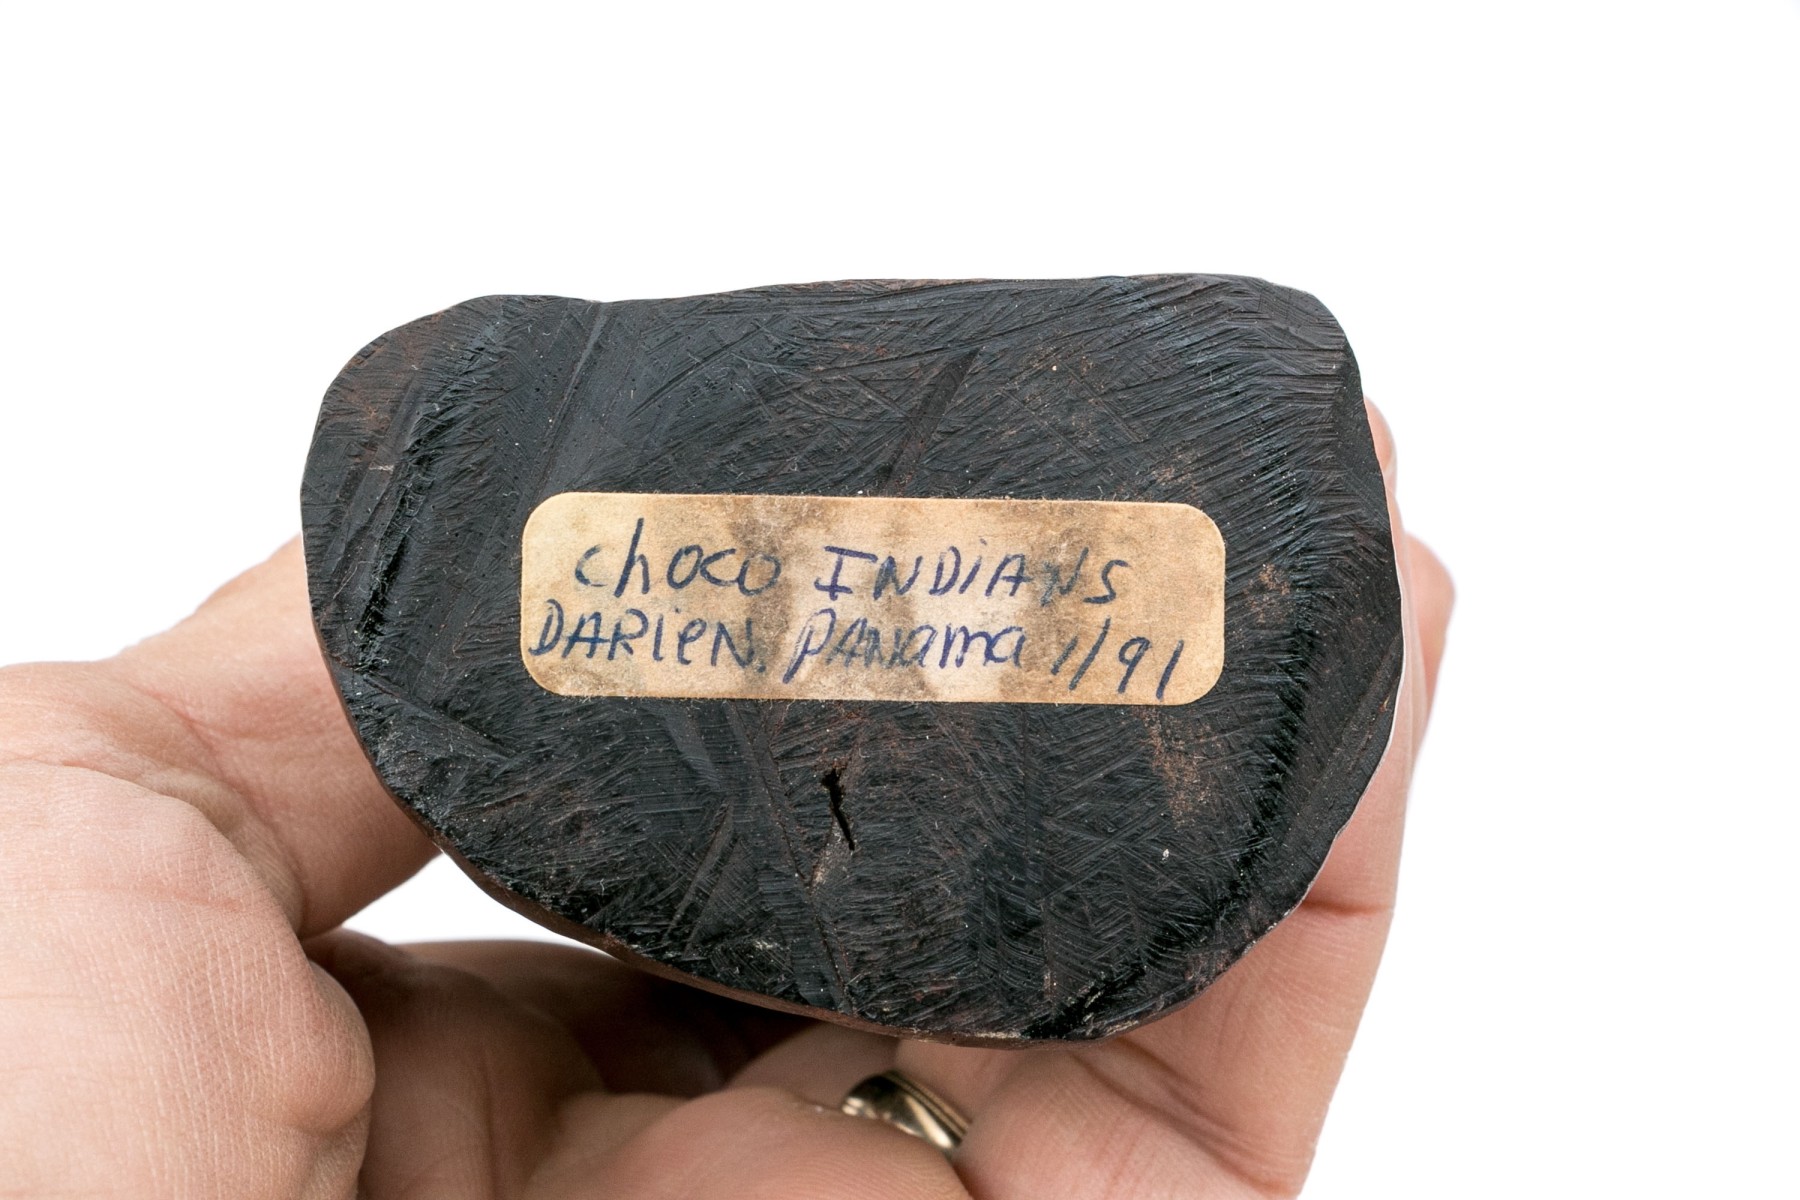 choco INDiANS
DARieN, PANama 1/91